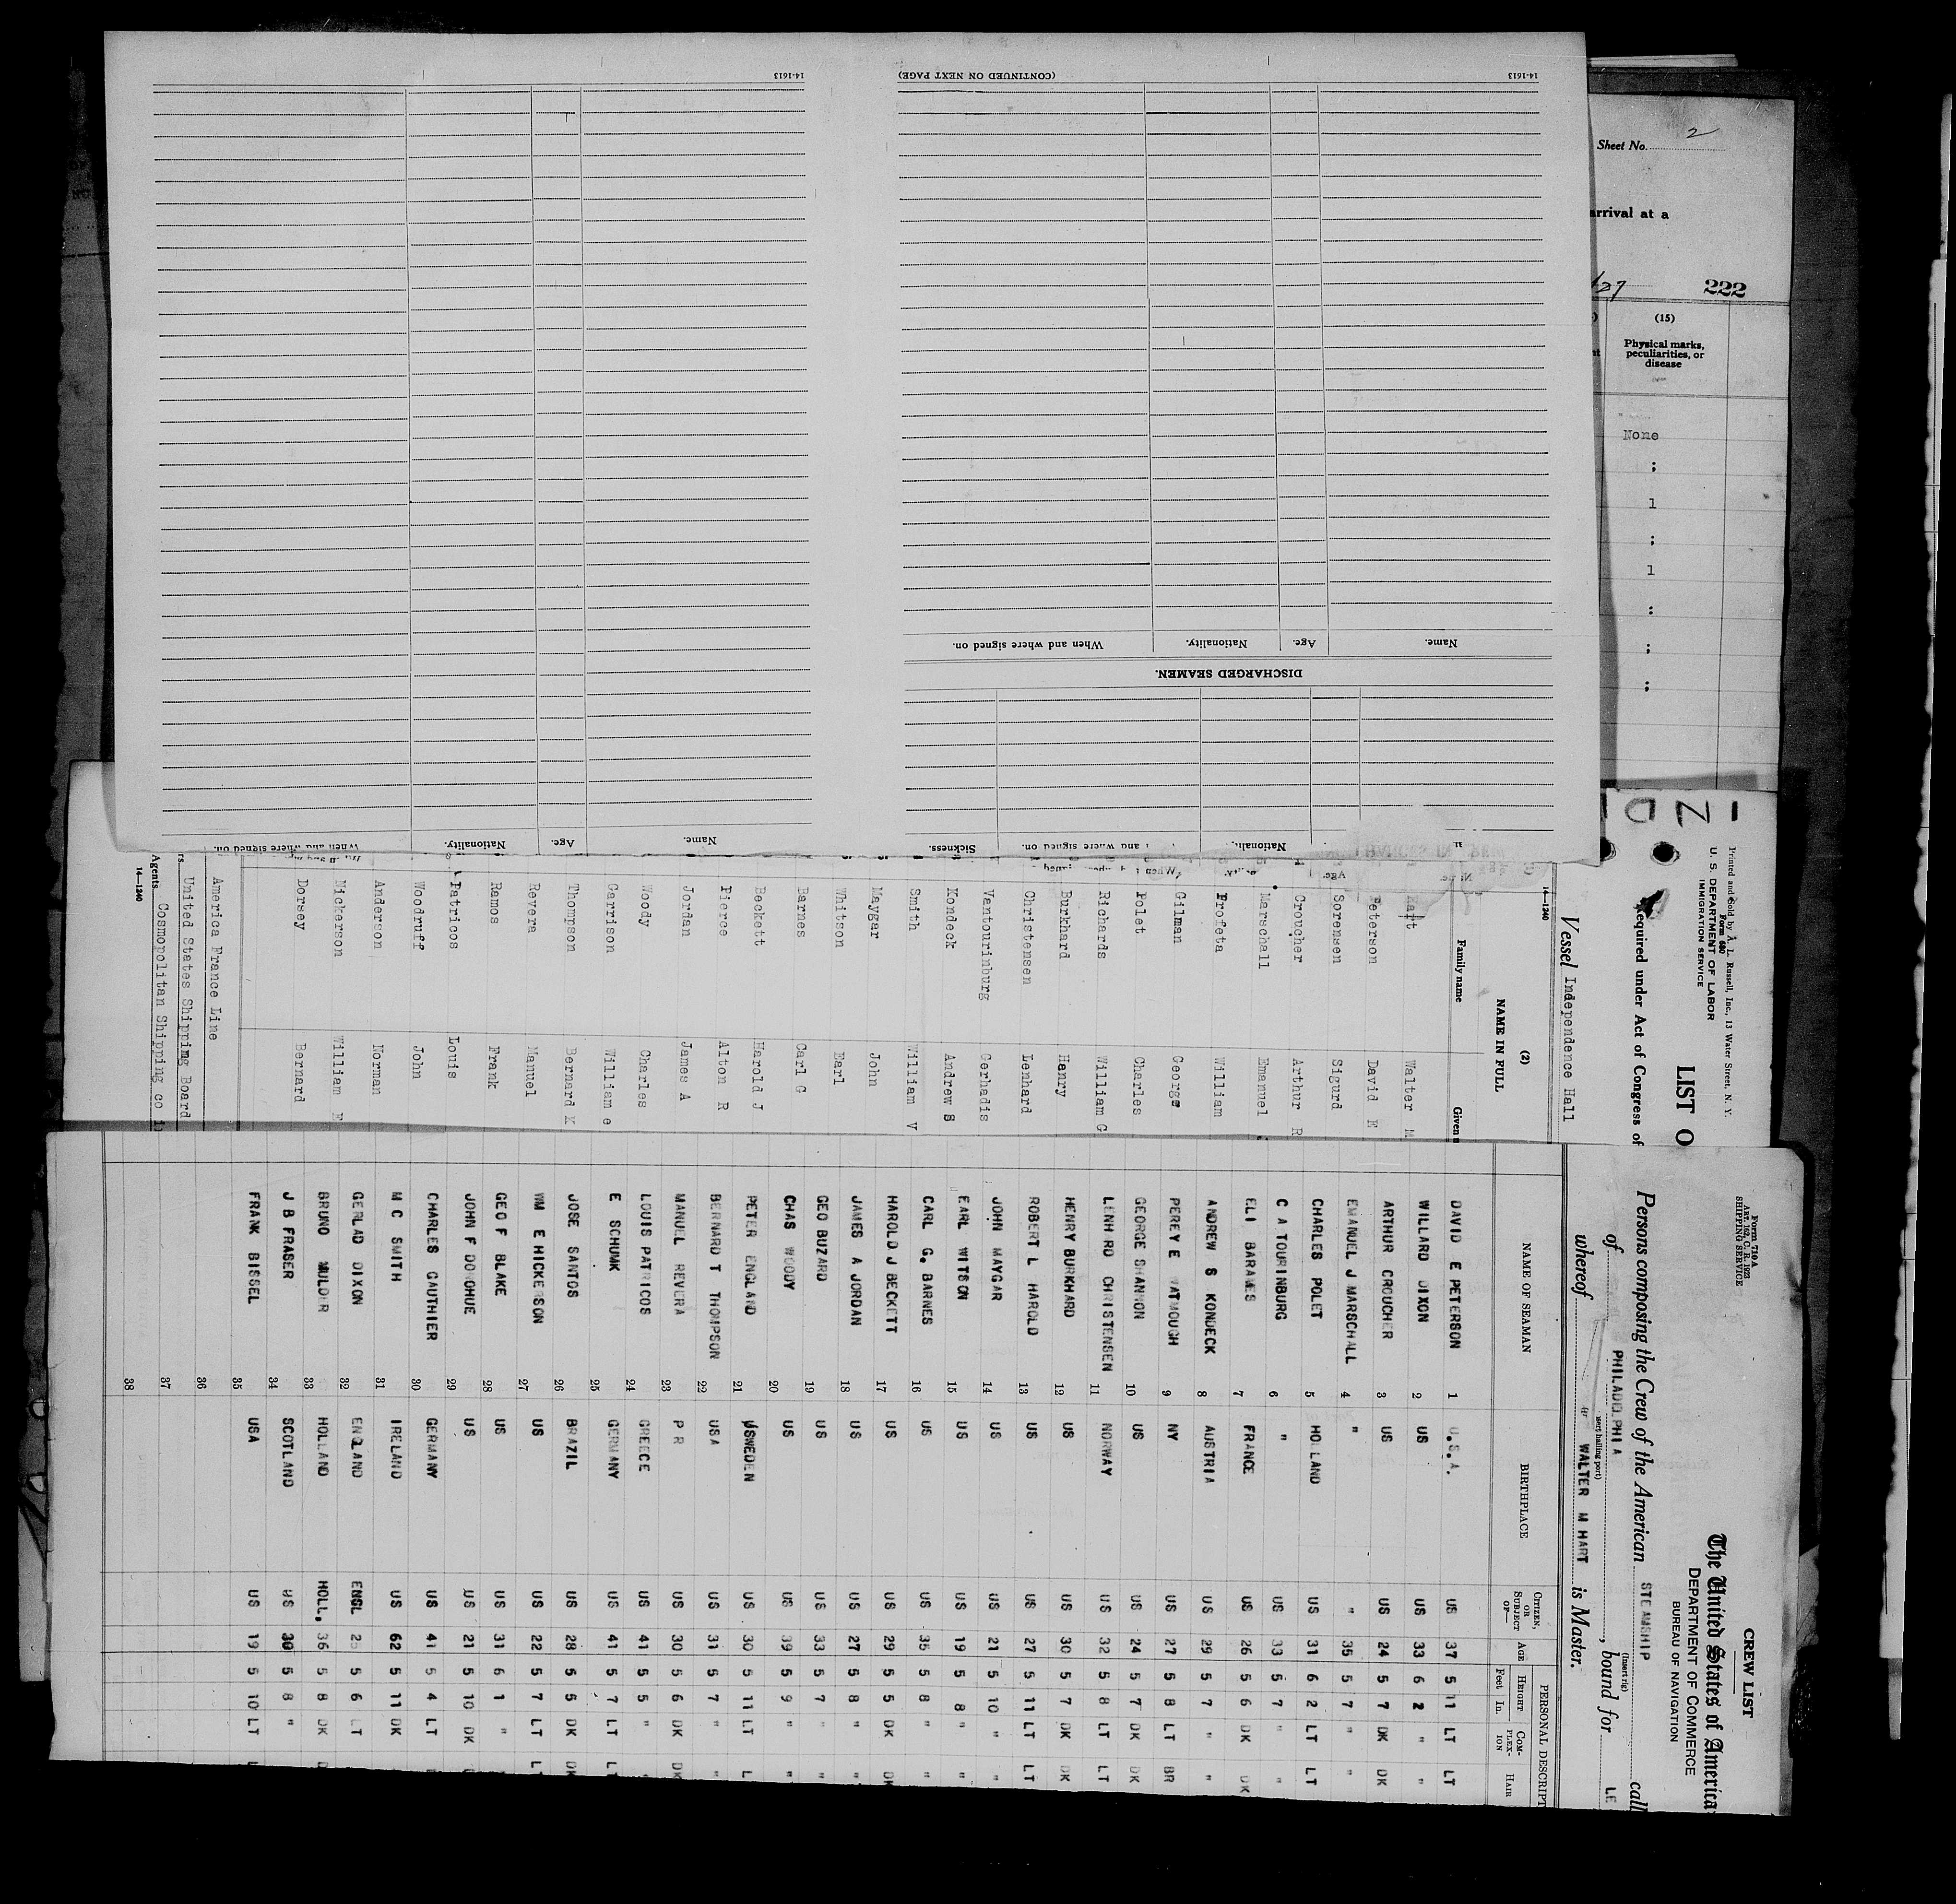 14-1613
(CONTINUED ON NEXT PAGE)
14-1613
Name.
Age.
Nationality.
When and where signed on.
DISCHARGED SEAMEN.
Sickness.
Name.
Age.
Nationality.
When and where signed on.
Sheet No. 2
arrival at a
27
222
(15)
Physical marks, peculiarities, or disease
None
"
1
"
1
"
"
"
Printed and Sold by A. L. Russell, Inc., 13 Water Street. N. Y.
Form 680
U. S. DEPARTMENT OF LABOR
IMMIGRATION SERVICE
LIST O
Required under Act of Congress of
Vessel Independence Hall
14—1240
(2)
NAME IN FULL
Family name
Given n
Hart Walter M
Peterson David E
Sorensen Sigurd
Croucher Arthur R
Marschall Emanuel
Profeta William
Gilman George
Polet Charles
Richards William G
Burkhard Henry
Christensen Lenhard
Vantourinburg Gerhadis
Kondeck Andrew S
Smith William V
Maygar John
Whitson Earl
Barnes Carl G
Beckett Harold J
Pierce Alton R
Jordan James A
Woody Charles
Garrison William e
Thompson Bernard K
Revera Manuel
Ramos Frank
Patricos Louis
Woodruff John
Anderson Norman
Nickerson William E
Dorsey Bernard
America France Line
United States Shipping Board
Agents Cosmopolitan Shipping co in
14—1240
Form 710A
ART. 162, C. R. 1923
SHIPPING SERVICE
CREW LIST
The United States of America
DEPARTMENT OF COMMERCE
BUREAU OF NAVIGATION
Persons composing the Crew of the American STEAMSHIP call
(Insert rig)
of PHILADELPHIA, bound for LE
whereof WALTER M HART is Master.
NAME OF SEAMAN
BIRTHPLACE
CITIZEN, OR SUBJECT OF—
AGE
PERSONAL DESCRIPT
HEIGHT
Feet In.
COMPLEXION
HAIR
DAVID E PETERSON 1 U.S.A. US 37 5 11 LT LT
WILLARD DIXON 2 US US 33 6 2 " "
ARTHUR CROUCHER 3 US US 24 5 7 DK DK
EMANUEL J MARSCHALL 4 " " 35 5 7 " "
CHARLES POLET 5 HOLLAND US 31 6 2 LT LT
C A TOURINBURG 6 " US 33 5 7 " "
ELI BARAMES 7 FRANCE US 26 5 6 DK DK
ANDREW S KONDECK 8 AUSTRIA US 29 5 7 " "
PEREY E WATMOUGH 9 NY US 27 5 8 LT BR
GEORGE SHANNON 10 US US 24 5 7 DK DK
LENHARD CHRISTENSEN 11 NORWAY US 32 5 8 LT LT
HENRY BURKHARD 12 US US 30 5 7 DK DK
ROBERT L HAROLD 13 US US 27 5 11 LT LT
JOHN MAYGAR 14 US US 21 5 10 " "
EARL WITSON 15 US US 19 5 8 " "
CARL G. BARNES 16 US US 35 5 8 " "
HAROLD J BECKETT 17 US US 29 5 5 DK DK
JAMES A JORDAN 18 US US 27 5 8 " "
GEO BUZARD 19 US US 33 5 7 " "
CHAS WOODY 20 US US 39 5 9 " "
PETER ENGLAND 21 SWEDEN US 30 5 11 LT L
BERNARD T THOMPSON 22 USA US 31 5 7 " "
MANUEL REVERA 23 P R US 30 5 6 DK DK
LOUIS PATRICOS 24 GREECE US 41 5 5 " "
E SCHUMK 25 GERMANY US 41 5 7 LT LT
JOSE SANTOS 26 BRAZIL US 28 5 5 DK DK
WM E HICKERSON 27 US US 22 5 7 LT LT
GEO F BLAKE 28 US US 31 6 1 "
JOHN F DONOHUE 29 US US 21 5 10 DK
CHARLES GAUTHIER 30 GERMANY US 41 5 4 LT
M C SMITH 31 IRELAND US 62 5 11 DK
GERLAD DIXON 32 ENGLAND ENGL 5 6 LT
BRUNO MULDER 33 HOLLAND HOLL. 36 5 8 DK D
J B FRASER 34 SCOTLAND US 30 5 8 "
FRANK BISSEL 35 USA US 19 5 10 LT L
36
37
38